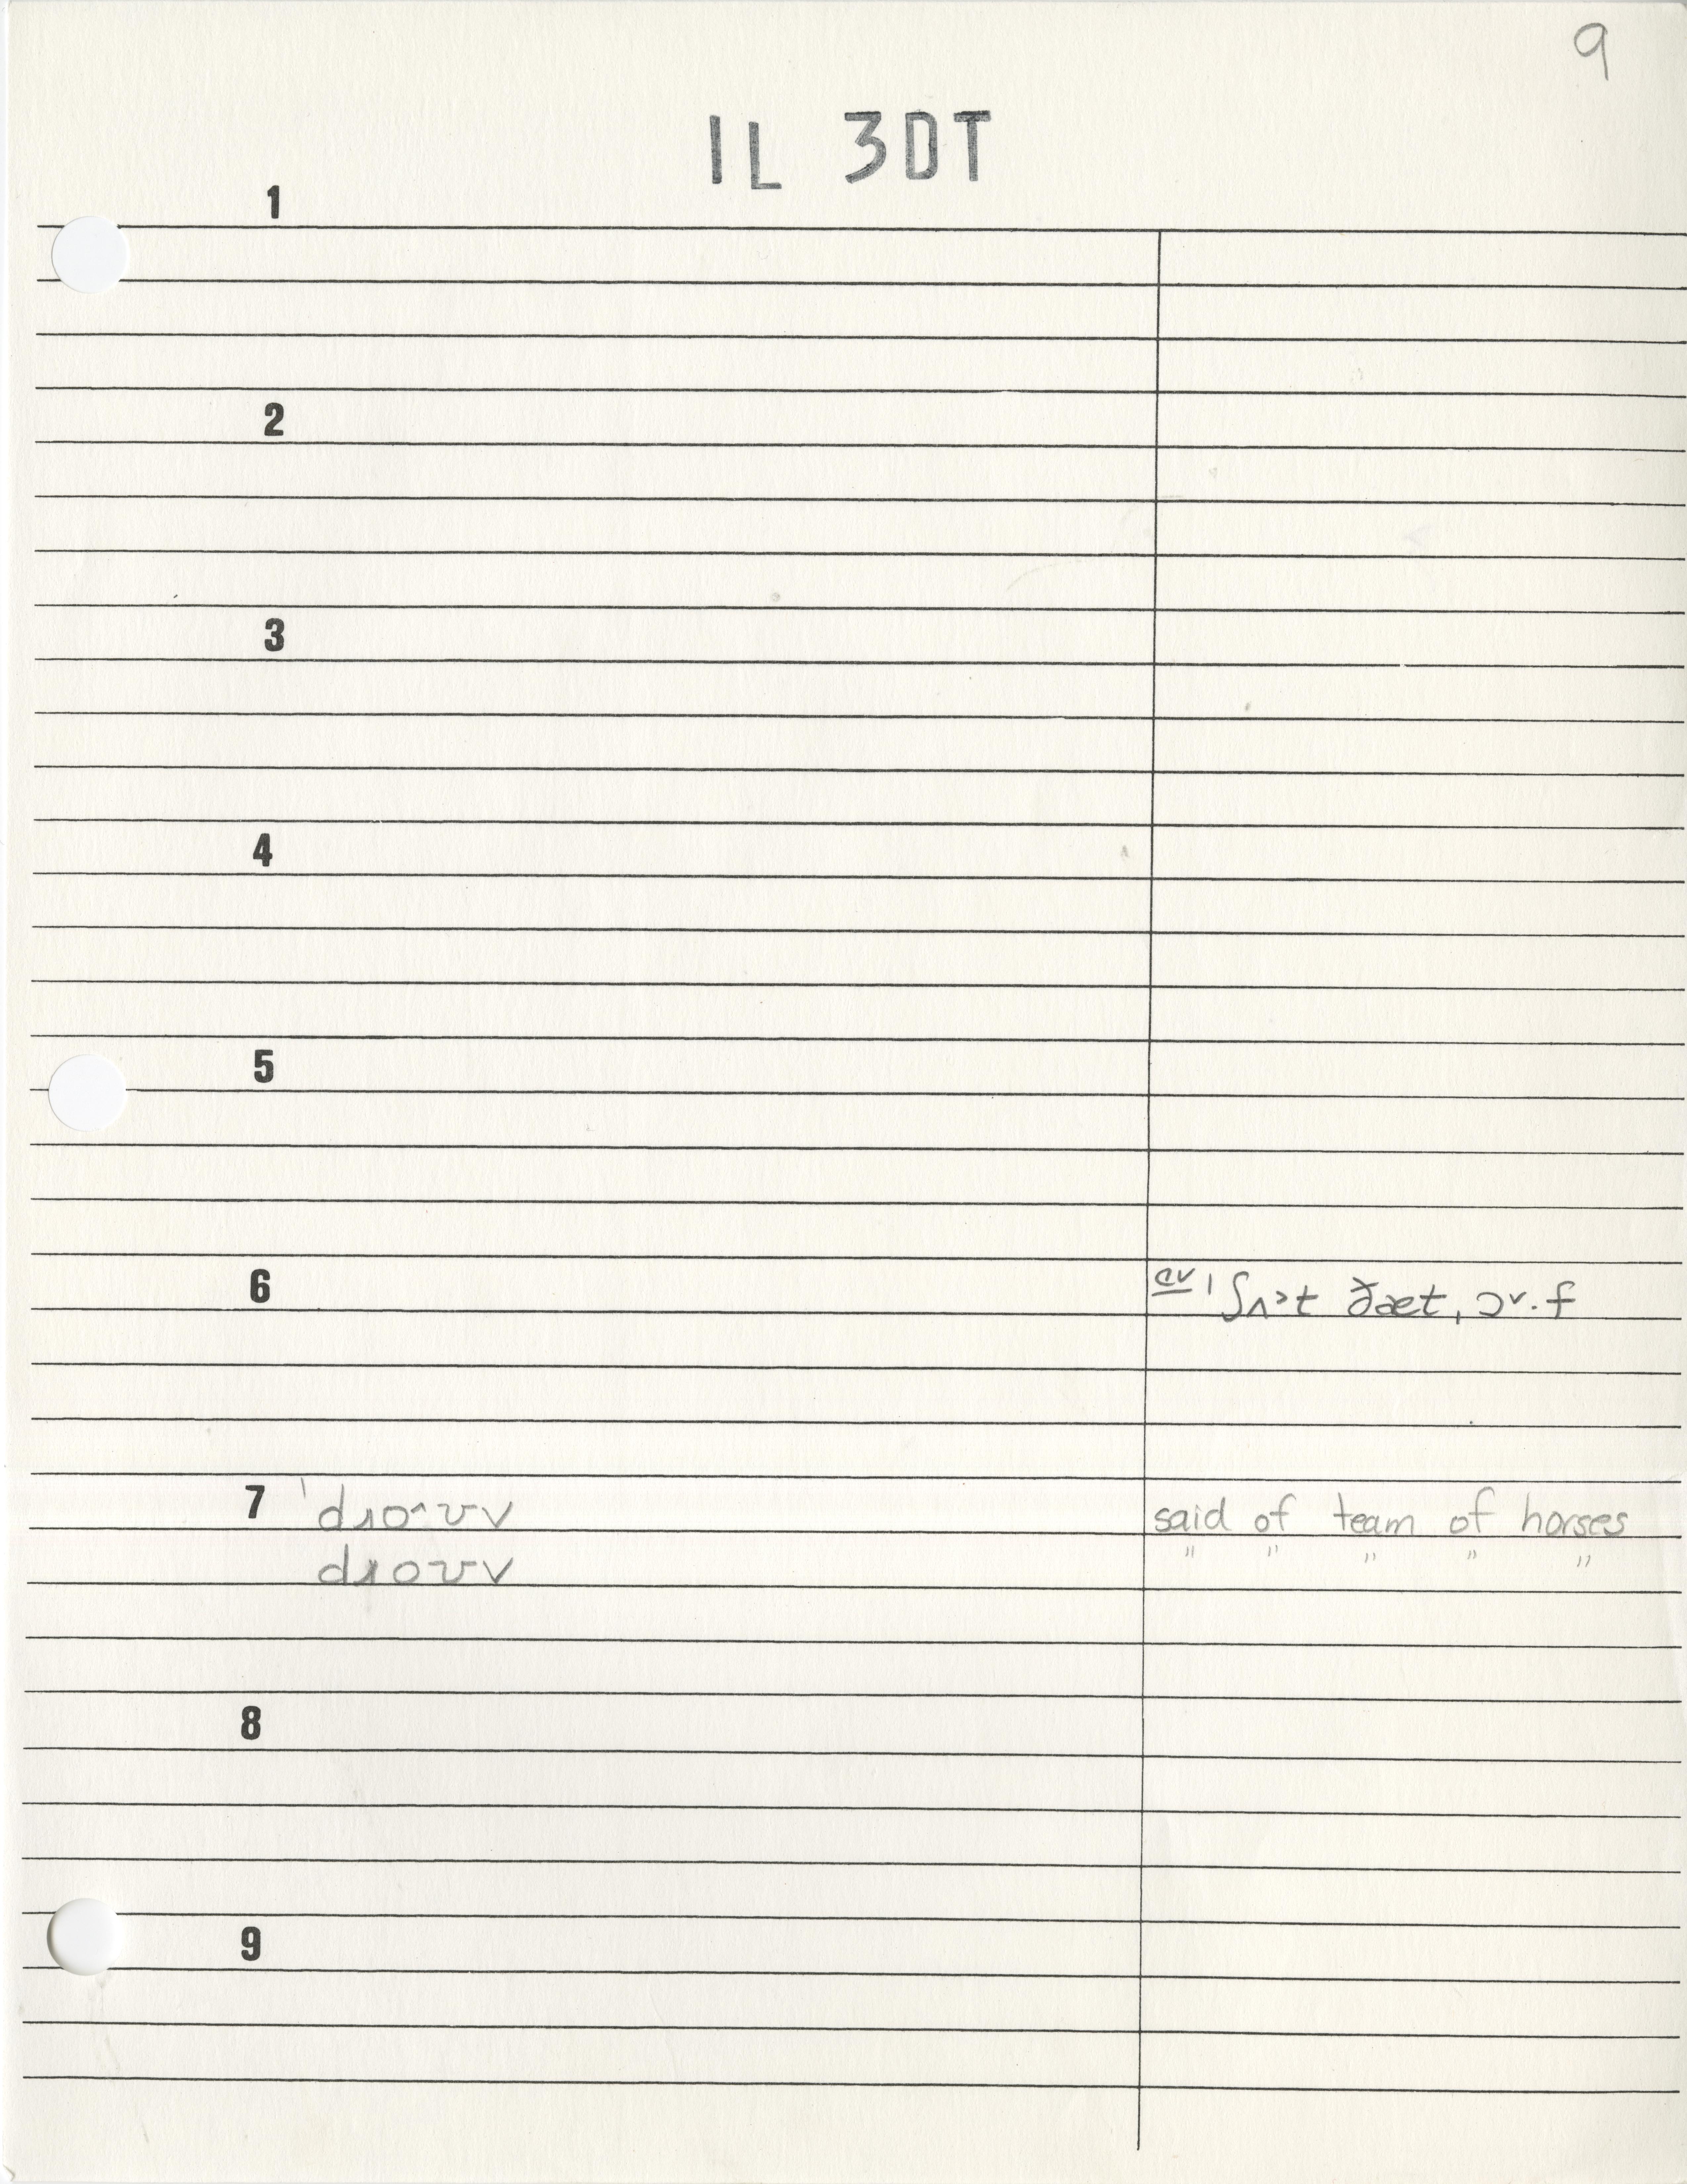 9
IL 3DT
1
2
3
4
5
6 cv ˈʃʌ˃t ðæt ˌɔ˅·f
7 ˈdɹo^ʊv said of team of horses
dɹoʊv " " " " "
8
9